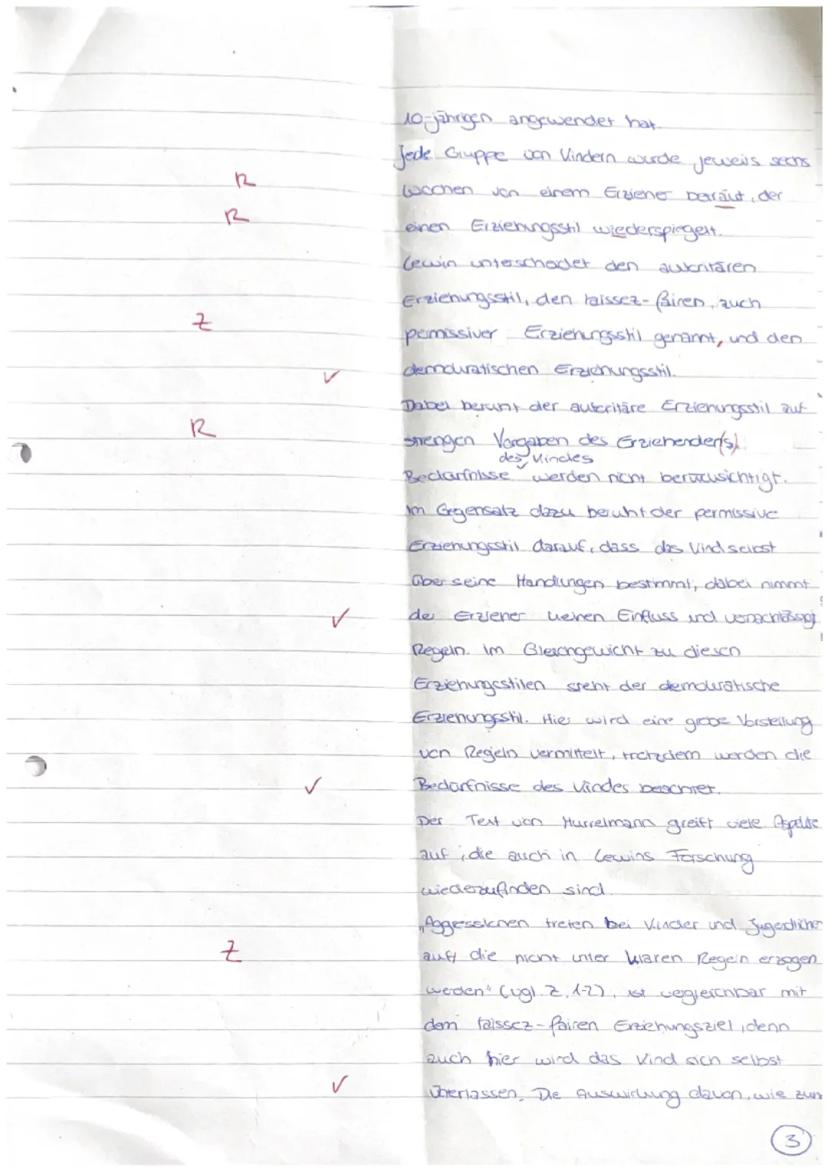 10-jährigen angewendet hat.
Jede Gruppe von Kindern wurde jeweils sechs
R
Wochen von einem Erzieher beträut, der
R
einen Erziehungsstil wiederspiegelt.
Lewin unterscheidet den autoritären
Erziehungsstil, den laissez-fairen, auch
Z
permissiver Erziehungsstil genannt, und den
✓
demokratischen Erziehungsstil.
Dabei beruht der autoritäre Erziehungsstil auf
R
strengen Vorgaben des Erziehender(s).
des Kindes
Bedürfnisse werden nicht berücksichtigt.
Im Gegensatz dazu beruht der permissive
Erziehungsstil darauf, dass das Kind selbst
über seine Handlungen bestimmt, dabei nimmt
✓
der Erzieher keinen Einfluss und vernachlässigt
Regeln. Im Gleichgewicht zu diesen
Erziehungsstilen steht der demokratische
Erziehungsstil. Hier wird eine grobe Vorstellung
von Regeln vermittelt, trotzdem werden die
✓
Bedürfnisse des Kindes beachtet.
Der Text von Hurrelmann greift viele Aspekte
auf, die auch in Lewins Forschung
wiederzufinden sind.
"Aggessionen treten bei Kinder und Jugendlichen
Z
auf, die nicht unter klaren Regeln erzogen
werden" (vgl. Z. 1-2), ist vegleichbar mit
dem laissez-fairen Erziehungsziel, denn
auch hier wird das Kind sich selbst
✓
überlassen. Die Auswirkung davon, wie zum
3